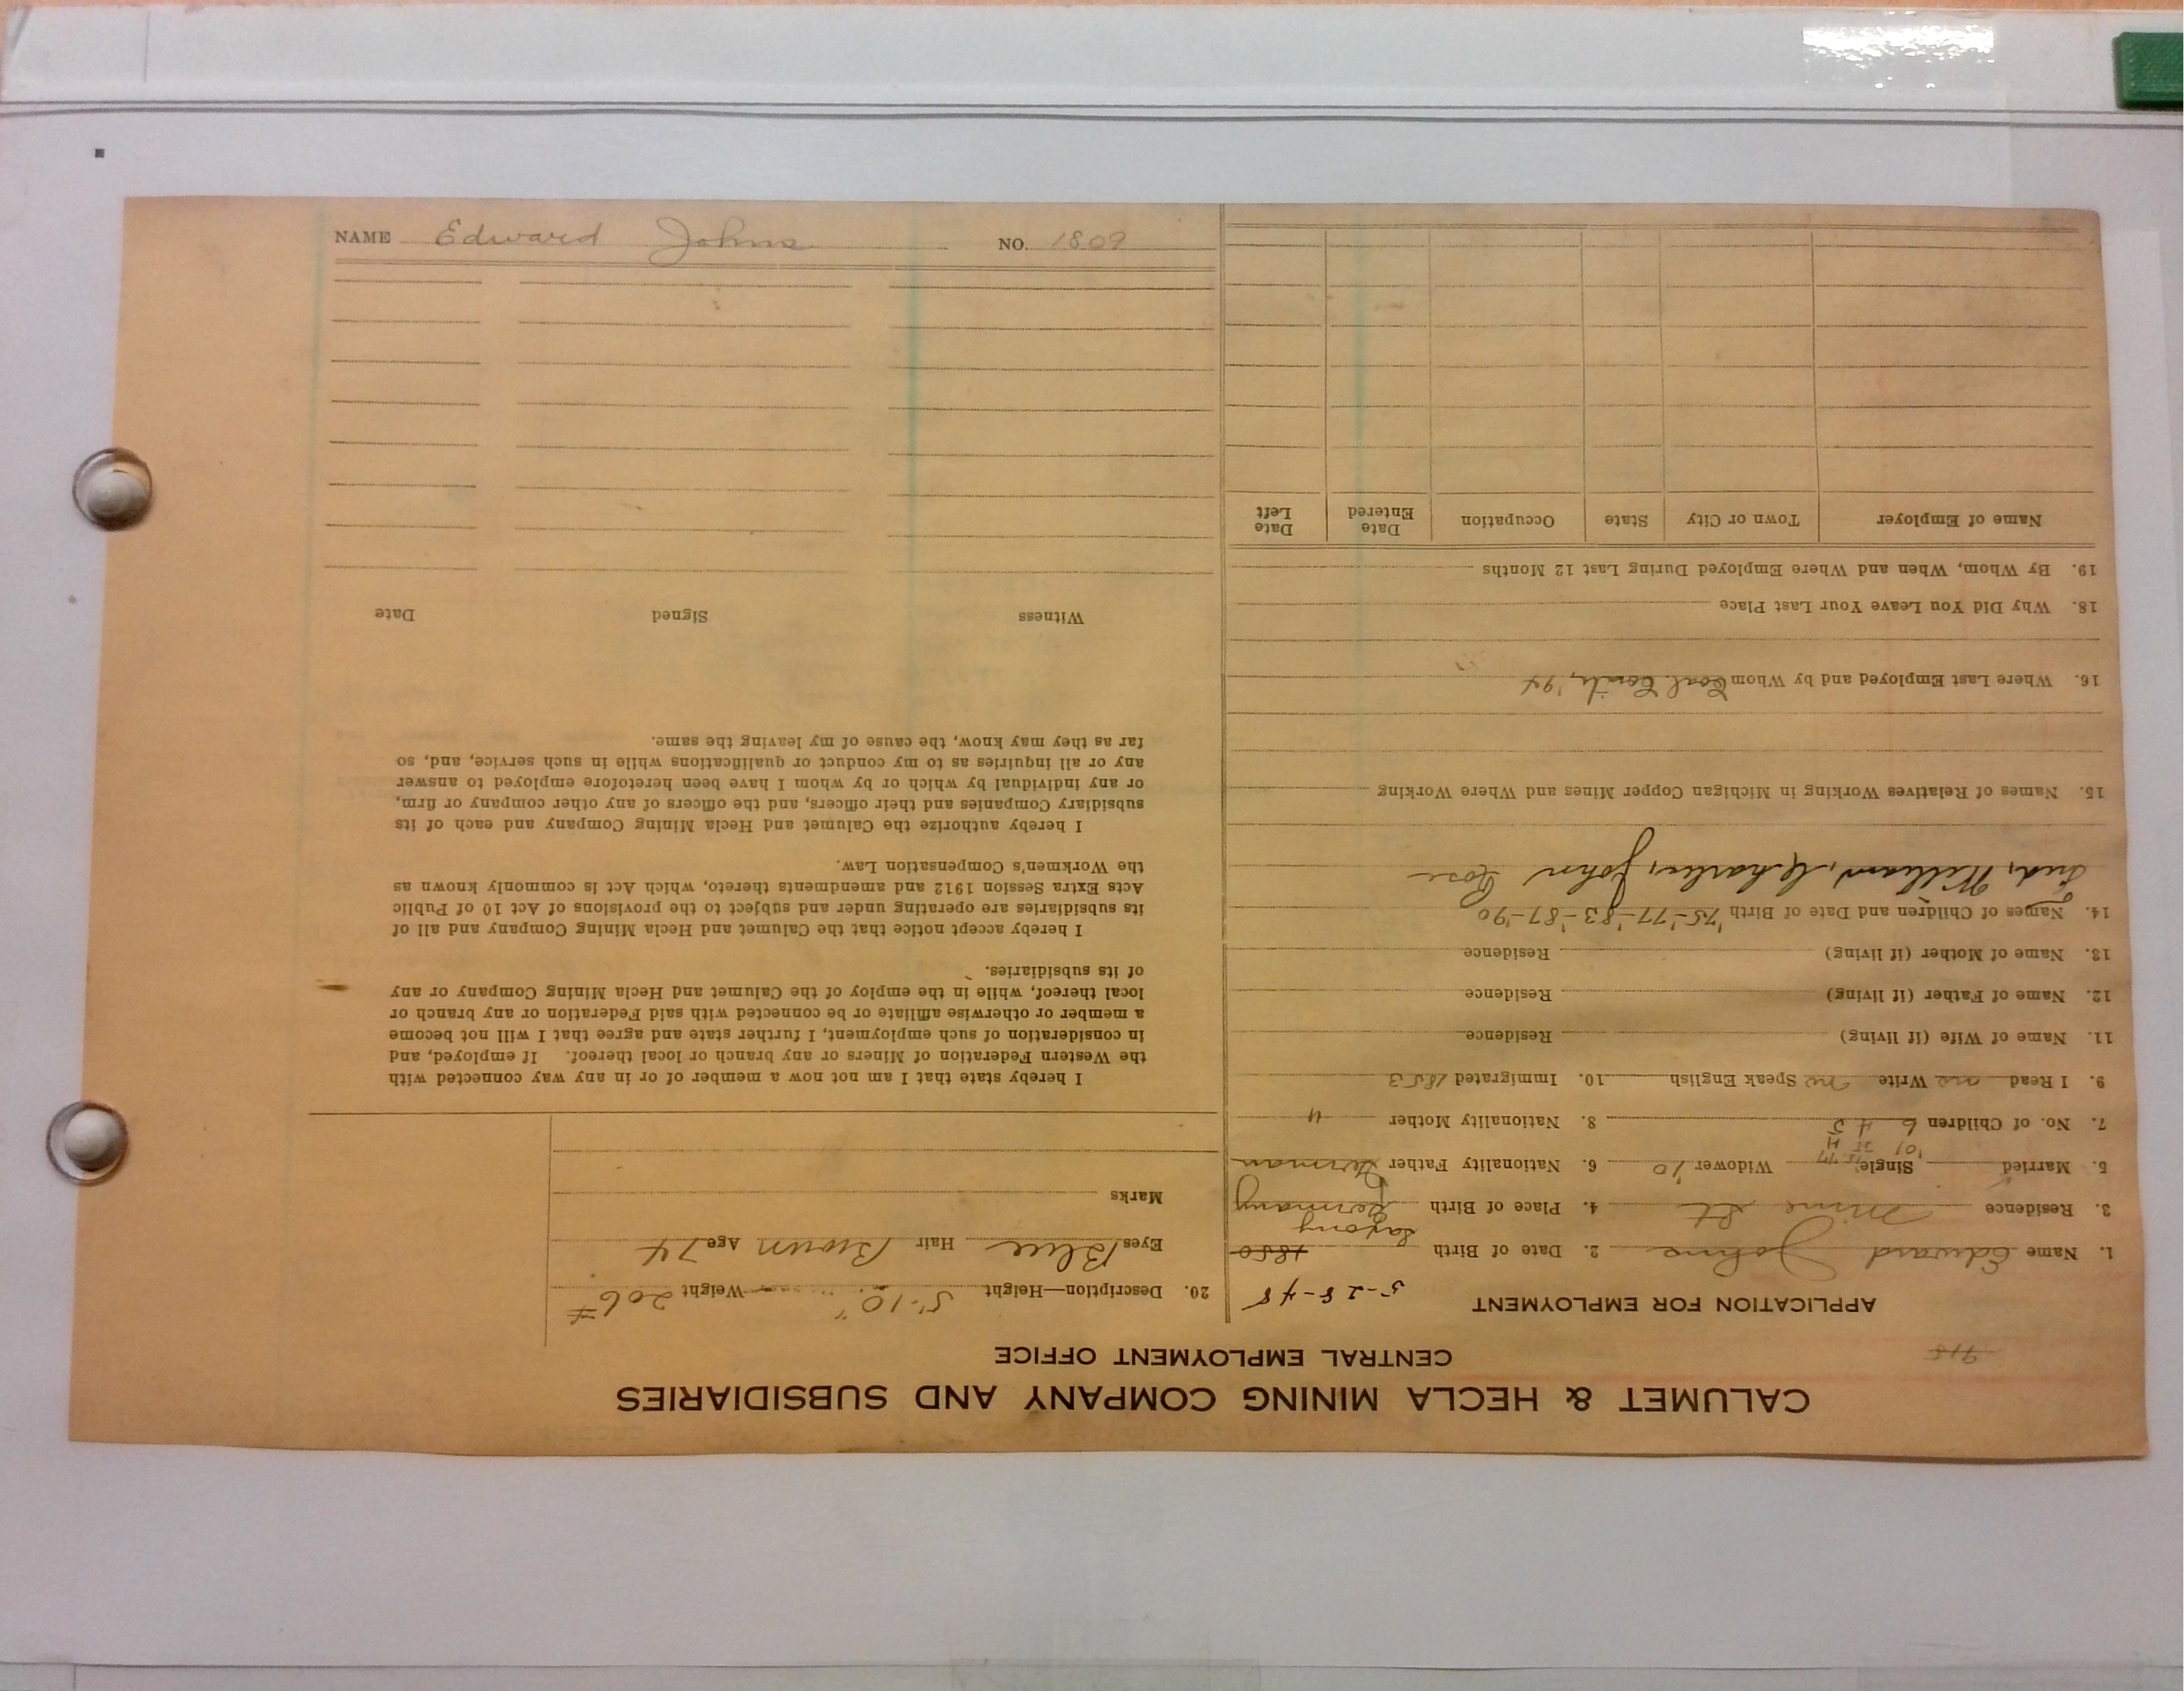 CALUMET & HECLA MINING COMPANY AND SUBSIDIARIES
CENTRAL EMPLOYMENT OFFICE
APPLICATION FOR EMPLOYMENT
5-28-48
1. Name Edward Johns 2. Date of Birth 1850
Saxony
3. Residence Mine St 4. Place of Birth Germany
5. Married Single Widower '10 6. Nationality Father German
7. No. of Children 6 8. Nationality Mother "
9. I Read Write Speak English 10. Immigrated 1853
11. Name of Wife (if living) Residence
12. Name of Father (if living) Residence
13. Name of Mother (if living) Residence
14. Names of Children and Date of Birth '75-'77-'83-'87-'90
William, Charles, John Rose
15. Names of Relatives Working in Michigan Copper Mines and Where Working
16. Where Last Employed and by Whom Coal '94
18. Why Did You Leave Your Last Place
19. By Whom, When and Where Employed During Last 12 Months
Name of Employer Town or City State Occupation Date Entered Date Left
20. Description—Height 5'-10" Weight 206#
Eyes Blue Hair Brown Age 74
Marks
I hereby state that I am not now a member of or in any way connected with
the Western Federation of Miners or any branch or local thereof. If employed, and
in consideration of such employment, I further state and agree that I will not become
a member or otherwise affiliate or be connected with said Federation or any branch or
local thereof, while in the employ of the Calumet and Hecla Mining Company or any
of its subsidiaries.
I hereby accept notice that the Calumet and Hecla Mining Company and all of
its subsidiaries are operating under and subject to the provisions of Act 10 of Public
Acts Extra Session 1912 and amendments thereto, which Act is commonly known as
the Workmen's Compensation Law.
I hereby authorize the Calumet and Hecla Mining Company and each of its
subsidiary Companies and their officers, and the officers of any other company or firm,
or any individual by which or by whom I have been heretofore employed to answer
any or all inquiries as to my conduct or qualifications while in such service, and, so
far as they may know, the cause of my leaving the same.
Witness Signed Date
NAME Edward Johns NO. 1809